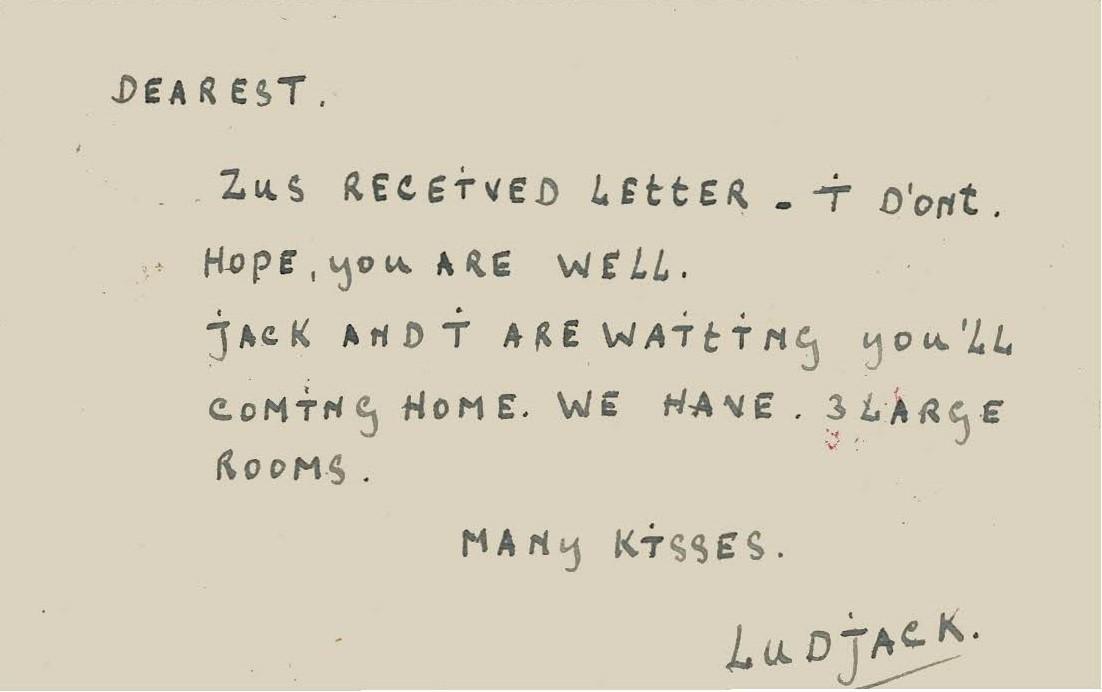 DEAREST.
Zus RECEIVED LEttER - I D'ONt.
HOPE, you ARE WELL.
jACK AND I ARE WAItING you'LL
COMING HOME. WE HAVE. 3 LARGE
ROOMS.
MANy KISSES.
LuDjACK.